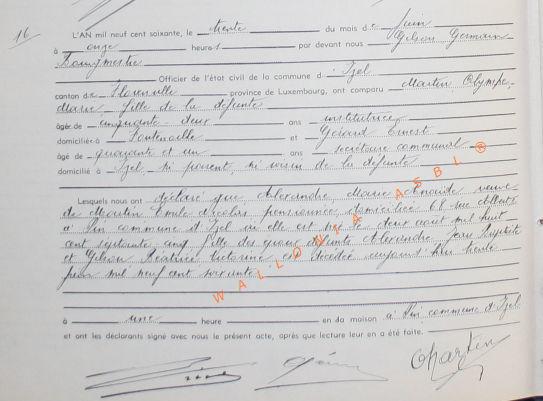 16
L'AN mil neuf cent soixante, le trente du mois de Juin
à onze heures par devant nous Gilson Germain
Bourgmestre
Officier de l'état civil de la commune d' Izel
canton de Florenville province de Luxembourg, ont comparu Martin Olympe,
Marie fille de la défunte
âgée de cinquante deux ans institutrice
domiciliée à Fontenoille et Gérard Ernest
âgé de quarante et un ans secrétaire communal
domicilié à Izel, ni parent, ni voisin de la défunte
Lesquels nous ont déclaré que Alexandre, Marie veuve
de Martin Emile Nicolas pensionnée domiciliée 68 rue
à Pin commune d'Izel où elle est née le deux août mil huit
cent septante cinq fille des époux défunts Alexandre Jean Baptiste
et Gilson Béatrice Victorine est décédée aujourd'hui trente
juin mil neuf cent soixante
à une heure en da maison à Pin commune d'Izel
et ont les déclarants signé avec nous le présent acte, après que lecture leur en a été faite.
WALLONIA ASBL ®